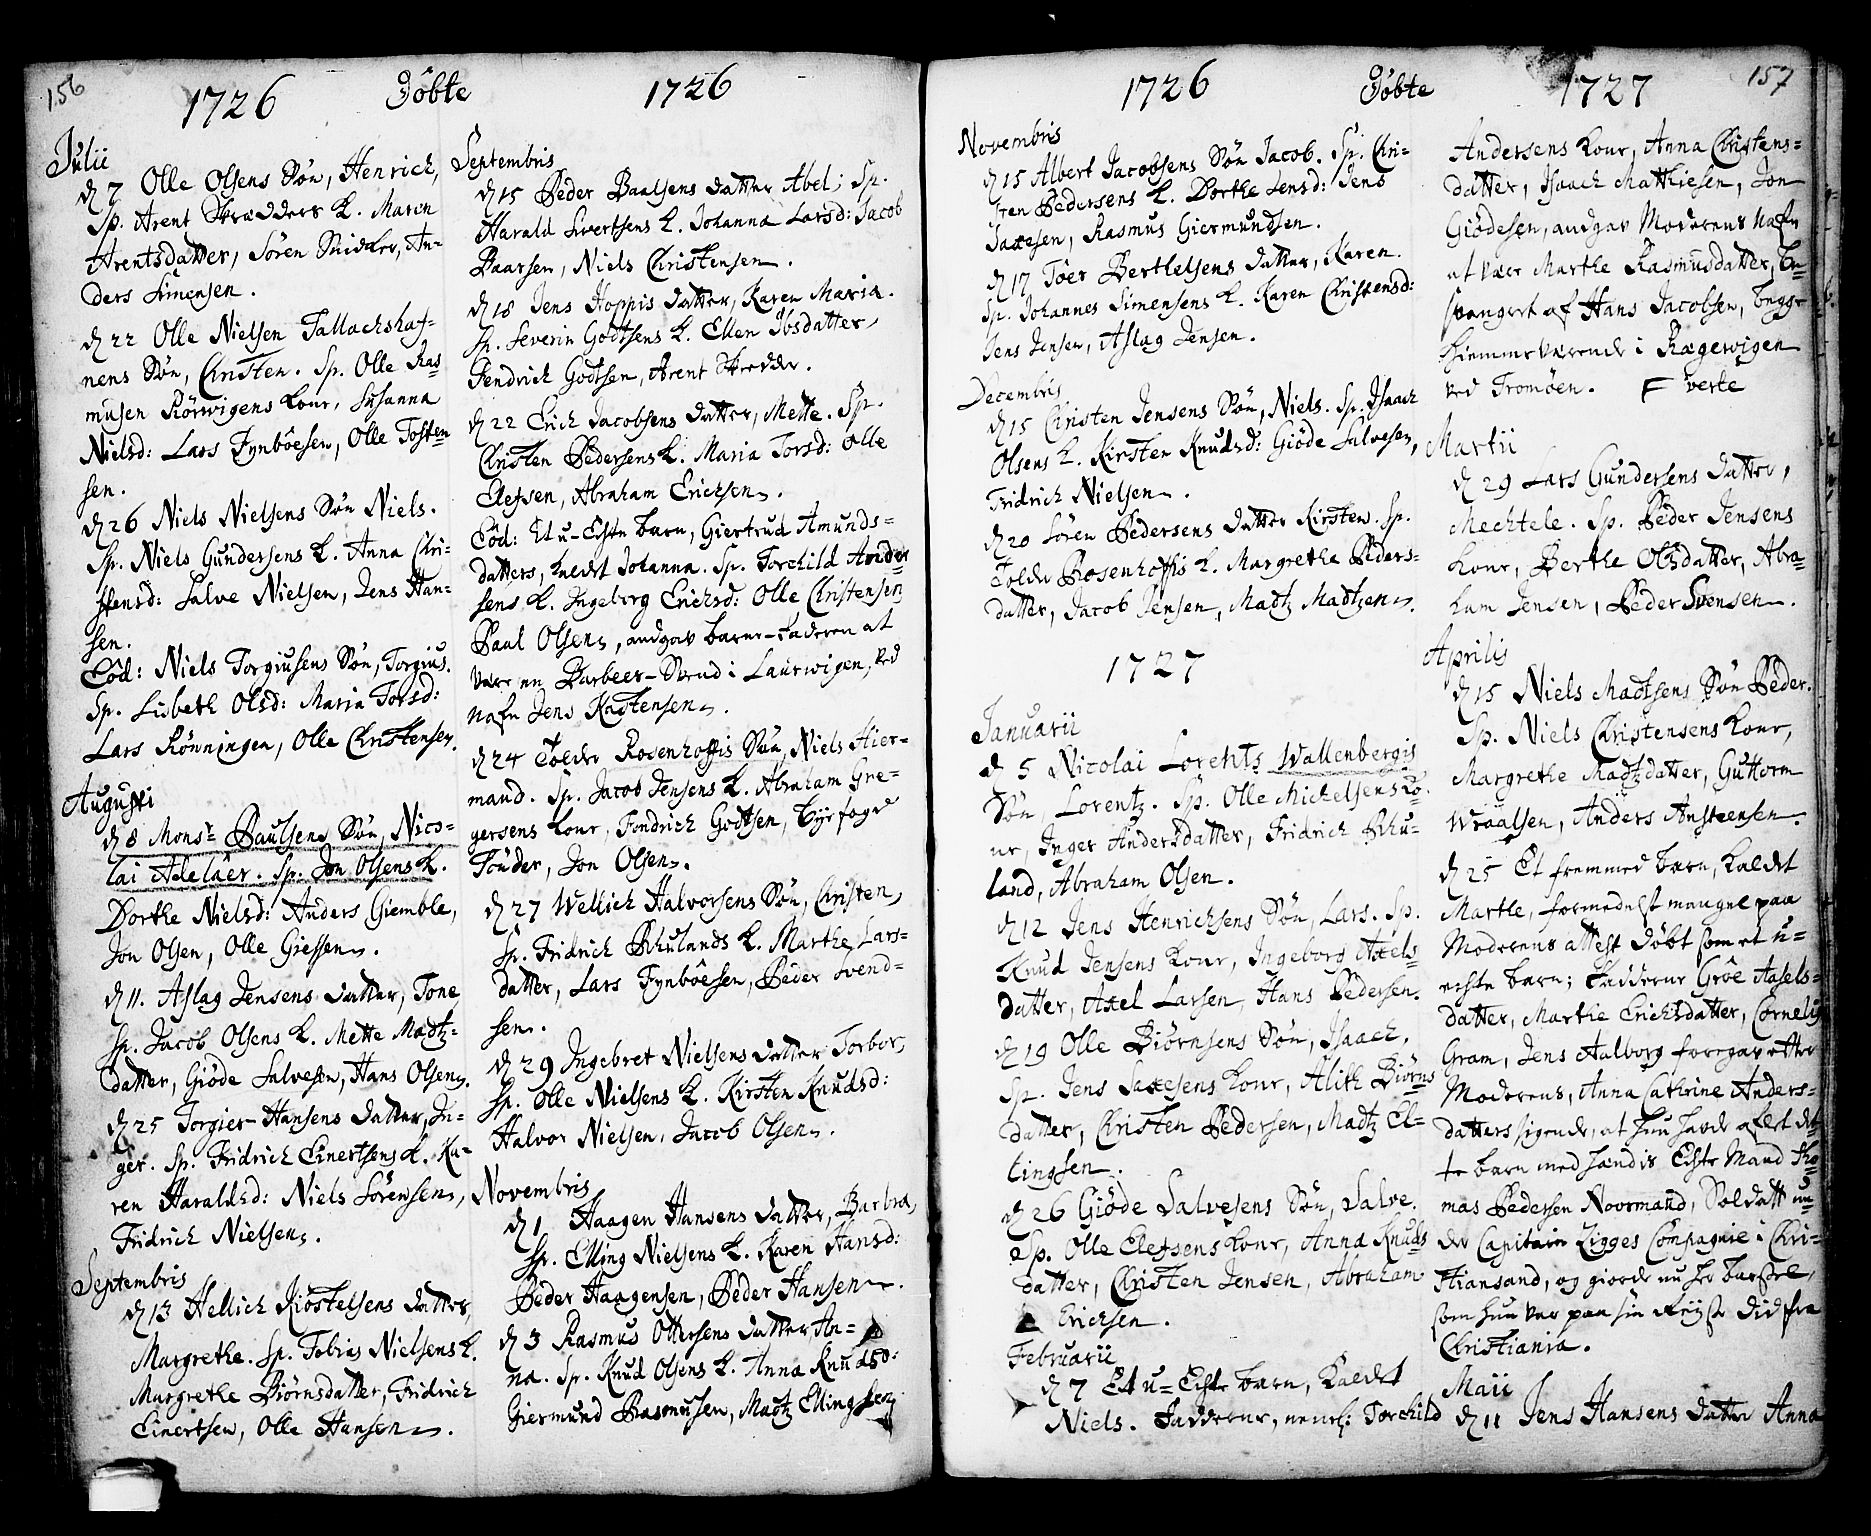 156
1726 Döbte 1726
Julii
d 7 Olle Olsens Sön, Henrich,
Sp. Arent Skrædders K. Maren
Arentsdatter, Sören Snidker, An-
ders Simensen.
d 22 Olle Nielsen Tallachshaf-
nens Sön, Christen. Sp. Olle Ras-
musen Körwigens Konr, Susanna
Nielsd: Lars Fynböesen, Olle Tosten
sen.
d 26 Niels Nielsens Sön Niels.
Sp. Niels Gundersens K. Anna Chri-
stensd: Salve Nielsen, Jens Han-
sen.
Eod: Niels Torgiusens Sön, Torgius.
Sp. Lisbeth Olsd: Maria Torsd:
Lars Rönningen, Olle Christensen.
Augusti
d 8 Monsr Paulsens Sön, Nico-
lai Adelaer. Sp: Jon Olsens K.
Dorthe Nielsd: Anders Giemble,
Jon Olsen, Olle Giessen.
d 11. Aslag Jensens Datter, Tone
Sp. Jacob Olsens K. Mette Madtz-
datter, Giöde Salvesen, Hans Olsen.
d 25 Torgier Hansens Datter, In-
ger. Sp. Fridrich Einertsens K. Ka-
ren Haraldsd: Niels Sörensen,
Fridrich Nielsen.
Septembris
d 13 Hellich Kiöstelsens Datter,
Margrethe. Sp. Tobias Nielsens K.
Margrethe Biörnsdatter, Fridrich
Einertsen, Olle Hansen.
Septembris
d 15 Peder Paalsens Datter Abel; Sp.
Harald Sivertsens K. Johanna Larsd: Jacob
Paarsen, Niels Christensen.
d 18 Jens Hoppis Datter, Karen Maria.
Sp. Severin Godtsens K. Ellen Ibsdatter,
Fendrich Godtsen, Arent Skredder.
d 22 Erich Jacobsens Datter, Mette. Sp.
Christen Pedersens K. Maria Torsd: Olle
Elefsen, Abraham Erichsen.
Eod: Et u-Egte barn, Giertrud Amunds-
datters, kaldt Johanna. Sp. Torchild Ander
sens K. Ingeborg Erichsd: Olle Christensen
Paul Olsen, andgav barne-faderen at
være en Barbeer-Svend i Laurwigen, ved
nafn Jens Kastensen.
d 24 Tolder Rosenhoffis Sön, Niels Hier-
mand. Sp. Jacob Jensens K. Abraham Gre-
gersens Konr, Fendrich Godtsen, Byefogd
Tönder, Jon Olsen.
d 27 Wellich Halvorsens Sön, Christen,
Sp. Fridrich Rhulands K. Marthe Lars-
datter, Lars Fynböesen, Peder Svend-
sen.
d 29 Ingebret Nielsens Datter Torbor,
Sp. Olle Nielsens K. Kirsten Knudsd:
Halvor Nielsen, Jacob Olsen.
Novembris
d 1 Haagen Hansens Datter, Barbra,
Sp. Elling Nielsens K. Karen Hansd:
Peder Haagensen, Peder Hansen.
d 3 Rasmus Ottersens Datter An-
na. Sp. Knud Olsens K. Anna Knudsd:
Giermund Rasmusen, Madtz Ellingsen
157
1726 Döbte 1727
Novembris
d 15 Albert Jacobsens Sön Jacob. Sp. Chri-
sten Pedersens K. Dorthe Jensd: Jens
Saxesen, Rasmus Giermundsen.
d 17 Töer Berthelsens Datter, Karen.
Sp. Johannes Simensens K. Karen Christensd:
Jens Jensen, Aslag Jensen.
Decembris
d 15 Christen Jensens Sön, Niels. Sp. Isaach
Olsens K. Kirsten Knudsd: Giöde Salvesen,
Fridrich Nielsen.
d 20 Sören Pedersens Datter Kirsten. Sp.
Tolder Rosenhoffis K. Margrethe Peders-
datter, Jacob Jensen, Madtz Madtzen.
1727
Januarii
d 5 Nicolai Lorentz Wallenbergis
Sön, Lorentz. Sp. Olle Michelsens Ko-
nr, Inger Andersdatter, Fridrich Rhu-
land, Abraham Olsen.
d 12 Jens Henrichsens Sön, Lars. Sp.
Knud Jensens Konr, Ingeborg Axels-
datter, Axel Larsen, Hans Pedersen.
d 19 Olle Biörnsens Sön, Isaach,
Sp. Jens Saxesens Konr, Alith Biörns
datter, Christen Pedersen, Madtz El-
lingsen.
d 26 Giöde Salvesens Sön, Salve.
Sp. Olle Elefsens Konr, Anna Knuds
datter, Christen Jensen, Abraham
Erichsen.
Februarii
d 7 Et u-Echte barn, kaldet
Niels. Fadderne, neml: Torchild
Andersens Konr, Anna Christens-
datter, Isaach Matthiesen, Jon
Giödesen, andgav Moderens nafn
at vær Marthe Rasmusdatter, be-
svangert af Hans Jacobsen, begge
hiemmeværende i Rægewigen
ved Tromöen. verte
Martii
d 29 Lars Gundersens Datter,
Mechtele. Sp. Peder Jensens
Konr, Berthe Olsdatter, Abra-
ham Jensen, Peder Svensen.
Aprilis
d 15 Niels Madtsens Sön Peder.
Sp. Niels Christensens Konr,
Margrethe Madtzdatter, Guttorm
Wraalsen, Anders Ansteensen.
d 25 Et fremmed barn, kaldet
Marthe, formedelst mangel paa
Moderens attest döbt som et u-
echte barn; Fadderne Gröe Axels-
datter, Marthe Erichsdatter, Cornelis
Gram, Jens Aalborg foregav efter
Moderens, Anna Cathrine Anders-
datters sigende, at hun havde aflet det-
te barn med hendis Echte Mand Tho-
mas Pedersen Noormand, Soldatt un-
der Capitain Zigges Compagnie i Chri-
stiansand, og giorde nu her barsel,
som hun var paa sin Reise did fra
Christiania.
Maii
d 11 Jens Hansens Datter Anna